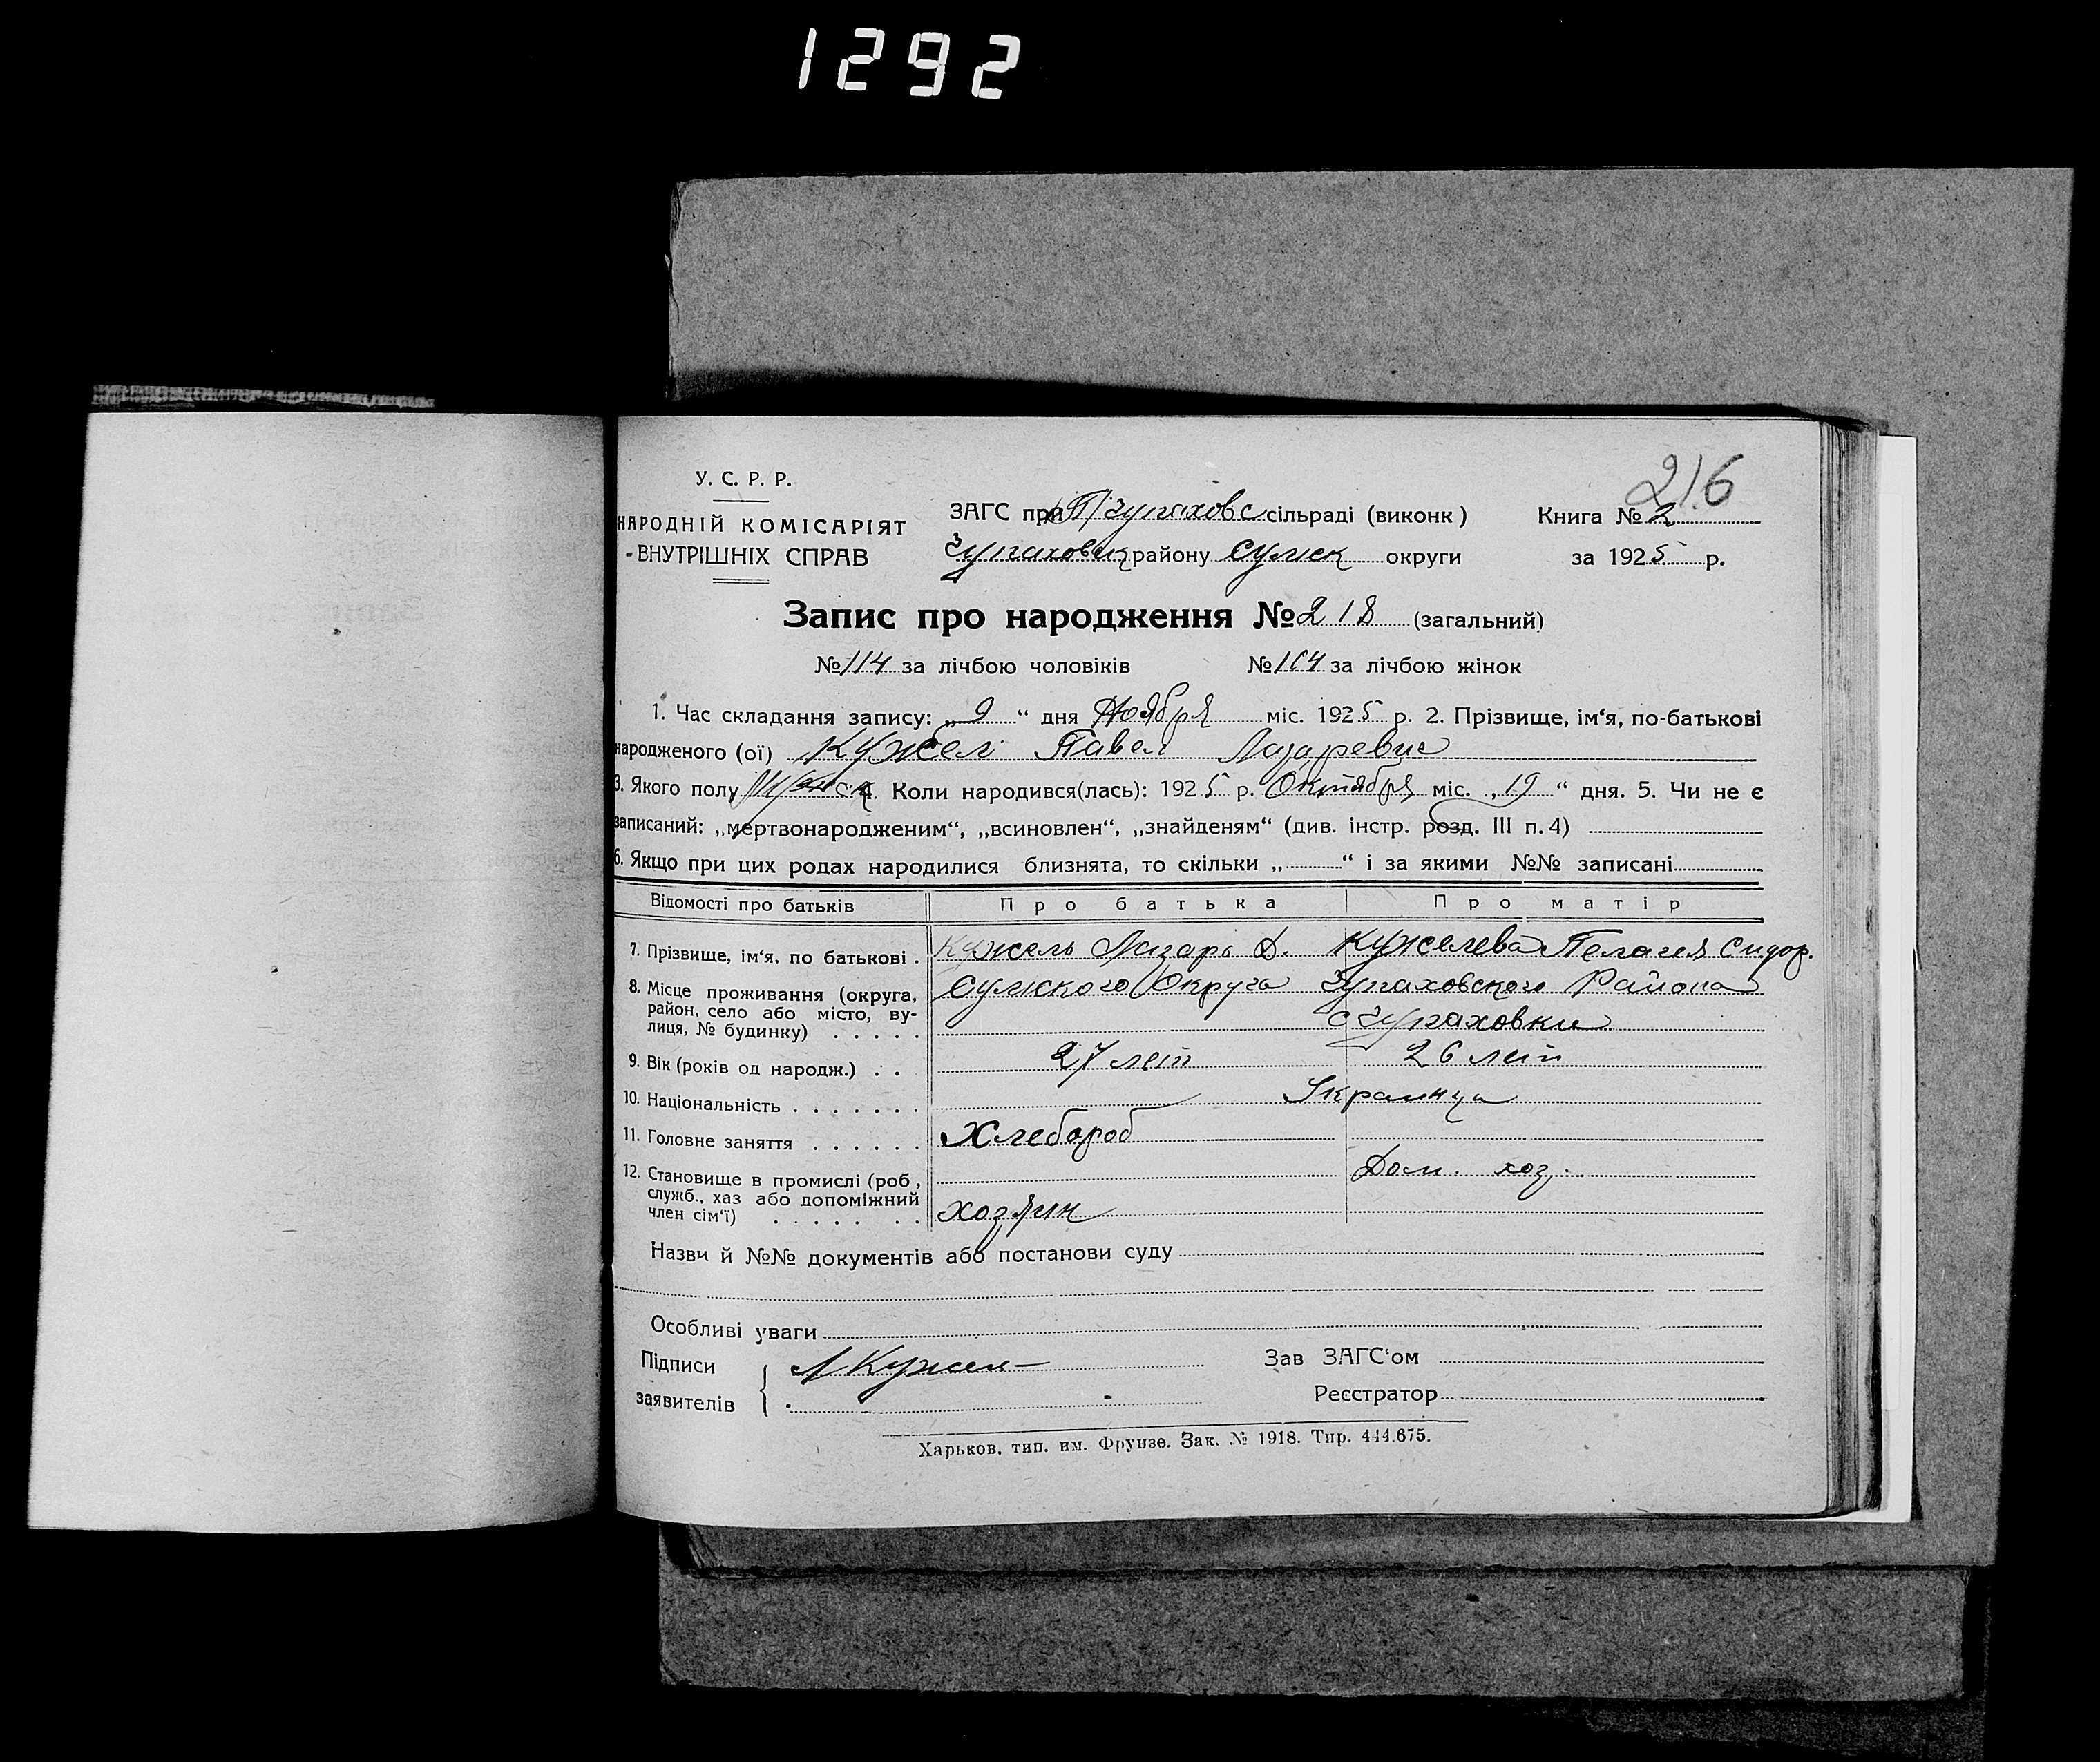 1292
216
У. С. Р. Р.
НАРОДНІЙ КОМІСАРІЯТ
ВНУТРІШНІХ СПРАВ
ЗАГС при Чупаховс сільраді (виконк)
Чупаховск району Сумск округи
Книга № 2
за 1925 р.
Запис про народження № 218 (загальний)
№ 114 за лічбою чоловіків № 104 за лічбою жінок
1. Час складання запису: „9“ дня Ноября міс. 1925 р. 2. Прізвище, ім‘я, по-батькові
народженого (ої) Кужел Павел Лазаревич
3. Якого полу Мужск 4. Коли народився(лась): 1925 р. Октября міс. „19“ дня. 5. Чи не є
записаний: „мертвонародженим“, „всиновлен“, „знайденям“ (див. інстр. розд. III п. 4)
6. Якщо при цих родах народилися близнята, то скільки „ “ і за якими №№ записані
Відомості про батьків Про батька Про матір
7. Прізвище, ім‘я, по батькові . Кужель Лазарь Д. Кужелева Пелагея Сидор.
8. Місце проживання (округа, район, село або місто, вулиця, № будинку) . . . . . Сумского Округа Чупаховского Района
с Чупаховки
9. Вік (років од народж.) . . 27 лет 26 лет
10. Національність . . . . . . . Украинца
11. Головне заняття . . . . . . Хлебороб
12. Становище в промислі (роб, служб., хаз або допоміжний член сім‘ї) . . . . . . . хозяин Дом. хоз.
Назви й №№ документів або постанови суду
Особливі уваги
Підписи
заявителів
Л Кужел
Зав ЗАГС‘ом
Реєстратор
Харьков, тип. им. Фрунзе. Зак. № 1918. Тир. 444.675.